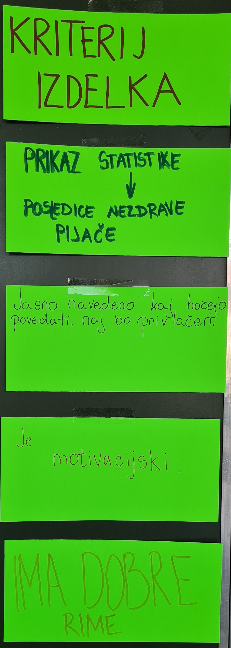 KRITERIJ
IZDELKA
PRIKAZ STATISTIKE
↓
POSLEDICE NEZDRAVE
PIJAČE
Jasno navedeno kaj hočejo
povedati, naj bo privlačen
Je
motivacijski.
IMA DOBRE
RIME